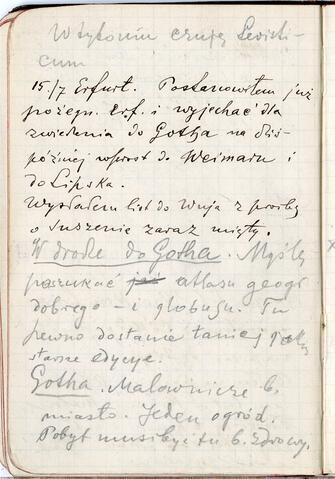 W tytoniu czuję Levisti-
cum
15/7 Erfurt. Postanowiłem już
pożegn. Erf. i wyjechać dla
zwiedzenia do Gotha na dziś
później wprost do Weimaru i
do Lipska.
Wysłałem list do Wuja z prośbą
o suszenie zaraz mięty.
W drodze do Gotha. Myślę
poszukać już atlasu geogr
dobrego – i globusu. Tu
pewno dostanie taniej
starsze edycye.
Gotha. Malownicze b.
miasto. Jeden ogród.
Pobyt musi być tu b. zdrowy.